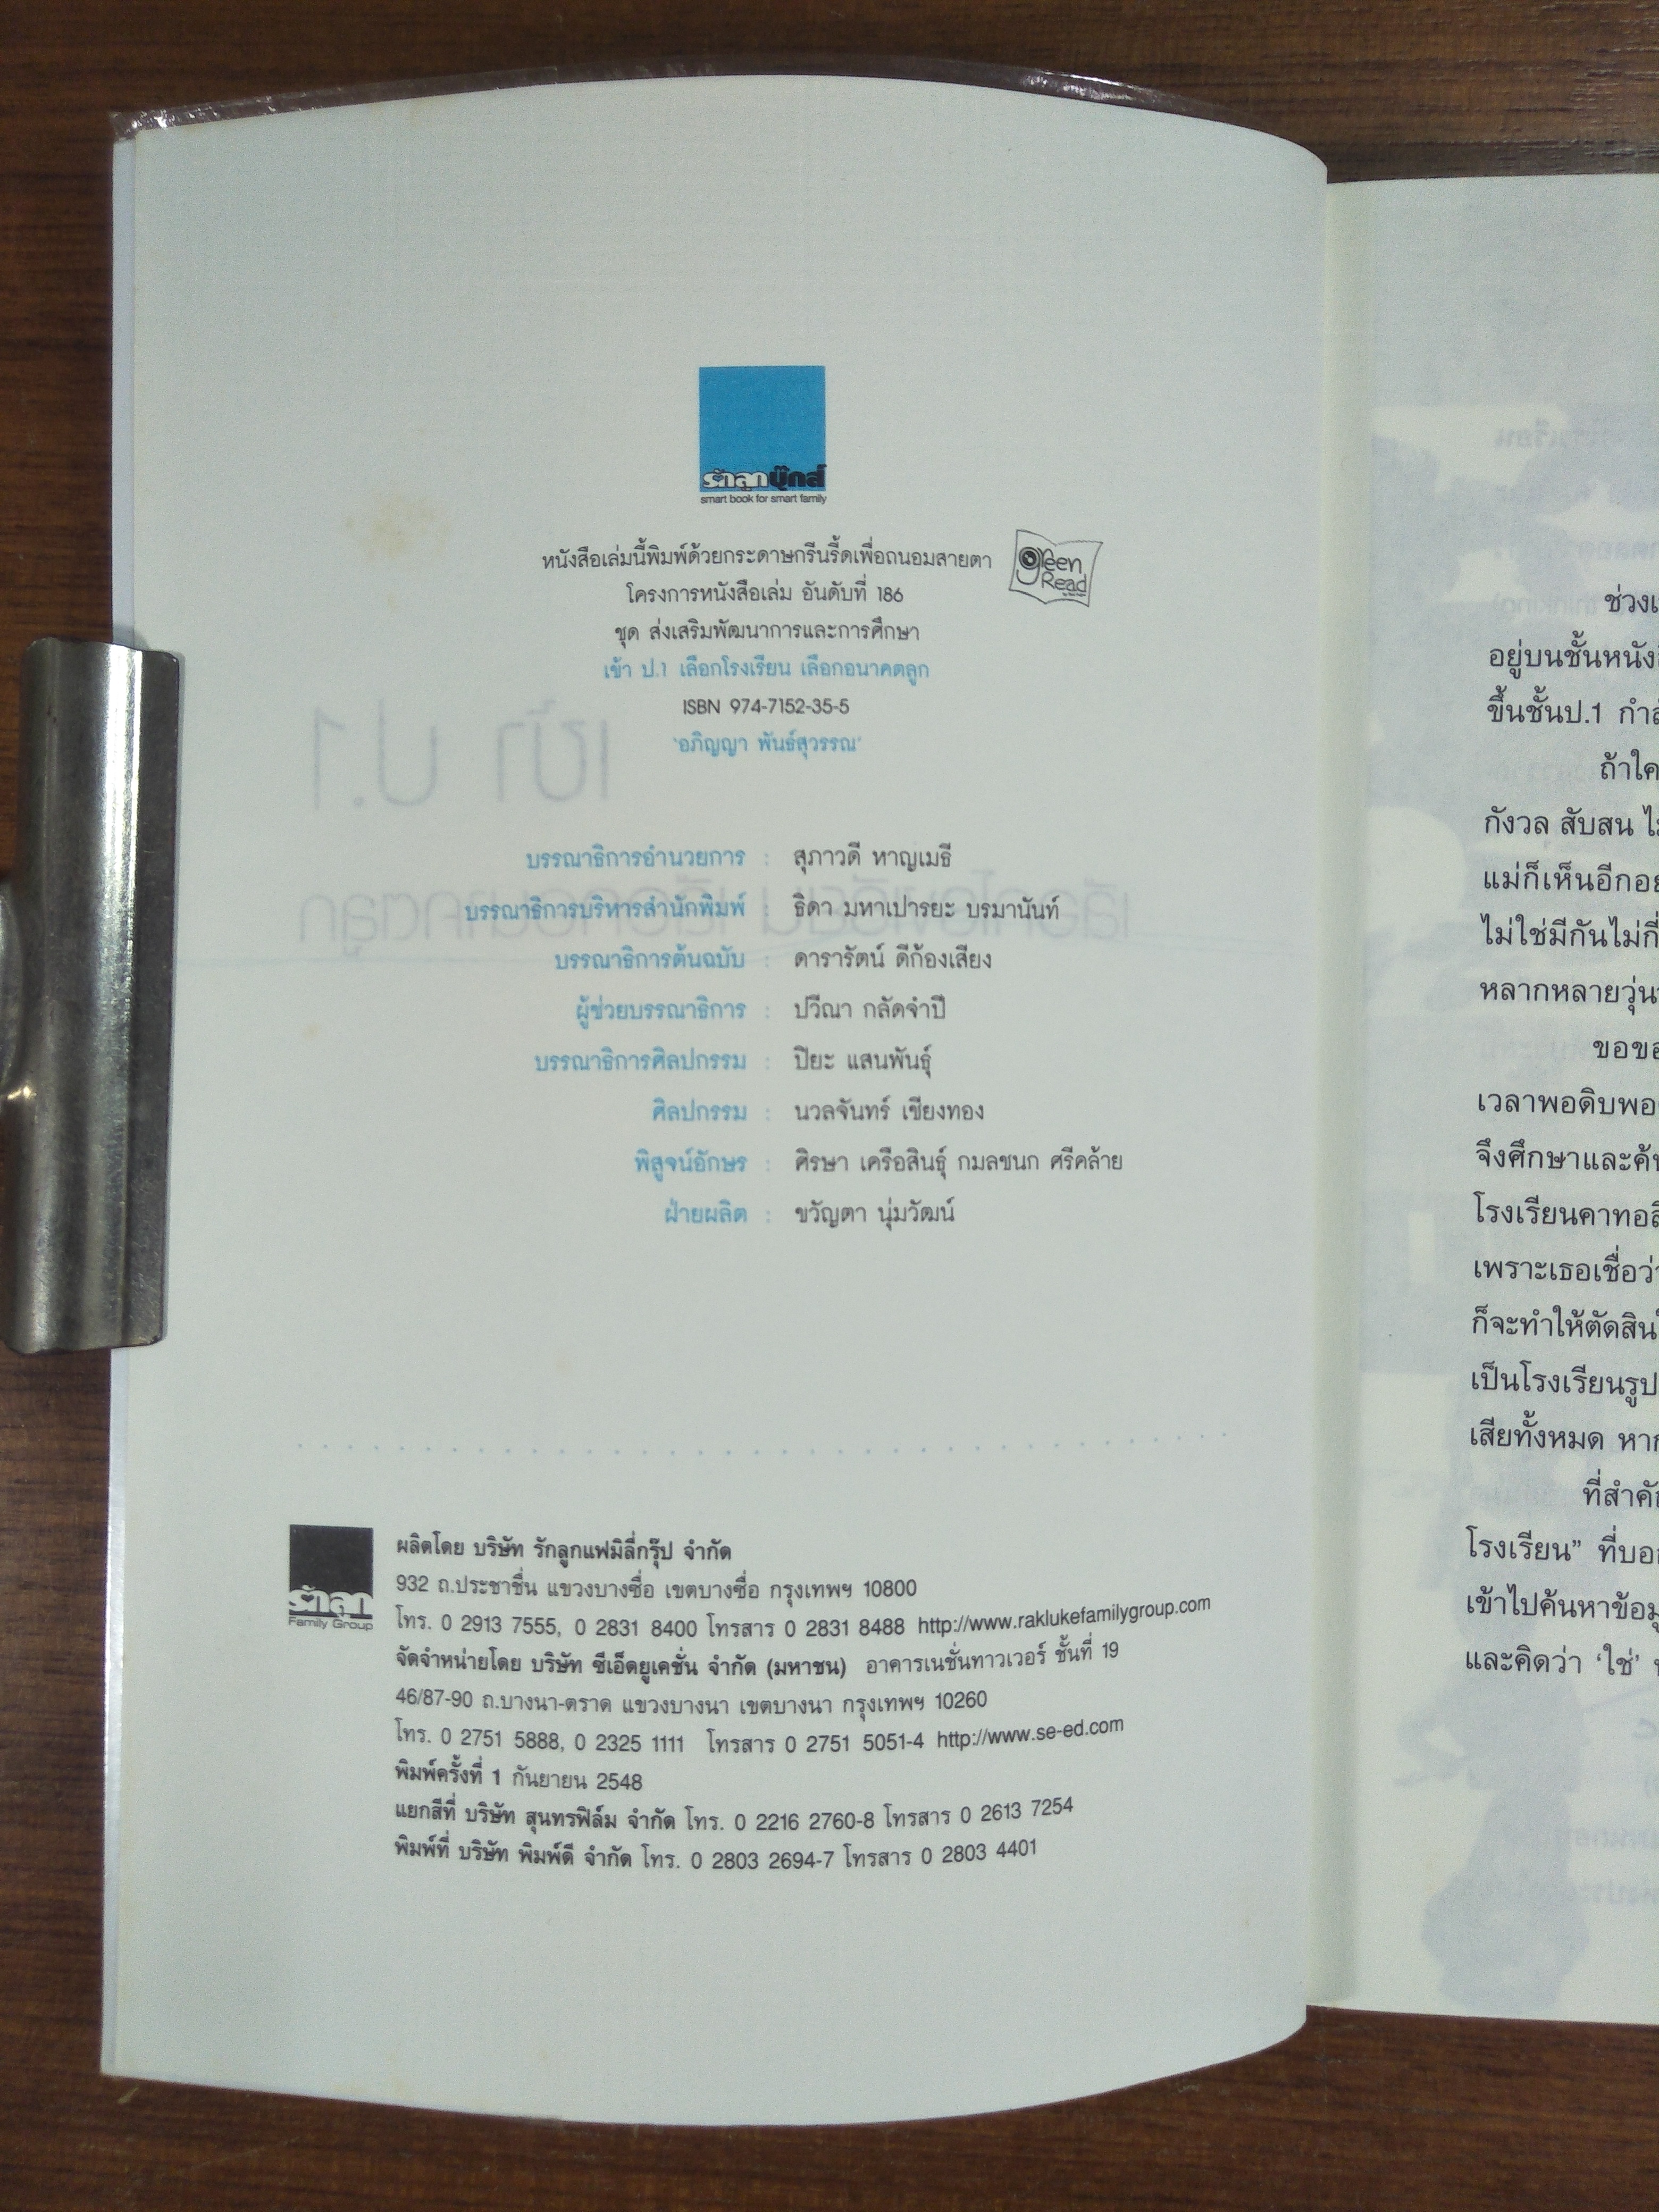 รักลูกบุ๊กส์
smart book for smart family
หนังสือเล่มนี้พิมพ์ด้วยกระดาษกรีนรี้ดเพื่อถนอมสายตา
green Read
โครงการหนังสือเล่ม อันดับที่ 186
ชุด ส่งเสริมพัฒนาการและการศึกษา
เข้า ป.1 เลือกโรงเรียน เลือกอนาคตลูก
ISBN 974-7152-35-5
‘อภิญญา พันธ์สุวรรณ’
บรรณาธิการอำนวยการ : สุภาวดี หาญเมธี
บรรณาธิการบริหารสำนักพิมพ์ : ธิดา มหาเปารยะ บรมานันท์
บรรณาธิการต้นฉบับ : ดารารัตน์ ดีก้องเสียง
ผู้ช่วยบรรณาธิการ : ปวีณา กลัดจำปี
บรรณาธิการศิลปกรรม : ปิยะ แสนพันธุ์
ศิลปกรรม : นวลจันทร์ เชียงทอง
พิสูจน์อักษร : ศิรษา เครือสินธุ์ กมลชนก ศรีคล้าย
ฝ่ายผลิต : ขวัญตา นุ่มวัฒน์
รักลูก
Family Group
ผลิตโดย บริษัท รักลูกแฟมิลี่กรุ๊ป จำกัด
932 ถ.ประชาชื่น แขวงบางซื่อ เขตบางซื่อ กรุงเทพฯ 10800
โทร. 0 2913 7555, 0 2831 8400 โทรสาร 0 2831 8488 http://www.raklukefamilygroup.com
จัดจำหน่ายโดย บริษัท ซีเอ็ดยูเคชั่น จำกัด (มหาชน) อาคารเนชั่นทาวเวอร์ ชั้นที่ 19
46/87-90 ถ.บางนา-ตราด แขวงบางนา เขตบางนา กรุงเทพฯ 10260
โทร. 0 2751 5888, 0 2325 1111 โทรสาร 0 2751 5051-4 http://www.se-ed.com
พิมพ์ครั้งที่ 1 กันยายน 2548
แยกสีที่ บริษัท สุนทรฟิล์ม จำกัด โทร. 0 2216 2760-8 โทรสาร 0 2613 7254
พิมพ์ที่ บริษัท พิมพ์ดี จำกัด โทร. 0 2803 2694-7 โทรสาร 0 2803 4401
อยู่บนชั้น
ขึ้นชั้นป.1
ถ้าใค
กังวล สับสน
แม่ก็เห็นอีก
ไม่ใช่มีกันไม่กี่
หลากหลาย
ขอขอ
เวลาพอดิบพอ
จึงศึกษาและ
โรงเรียน
เพราะเธอเชื่อ
ก็จะทำให้ตัดสิน
เป็นโรงเรียนรูป
เสียทั้งหมด
โรงเรียน” ที่
เข้าไปค้นหา
และคิดว่า ‘ใช่’